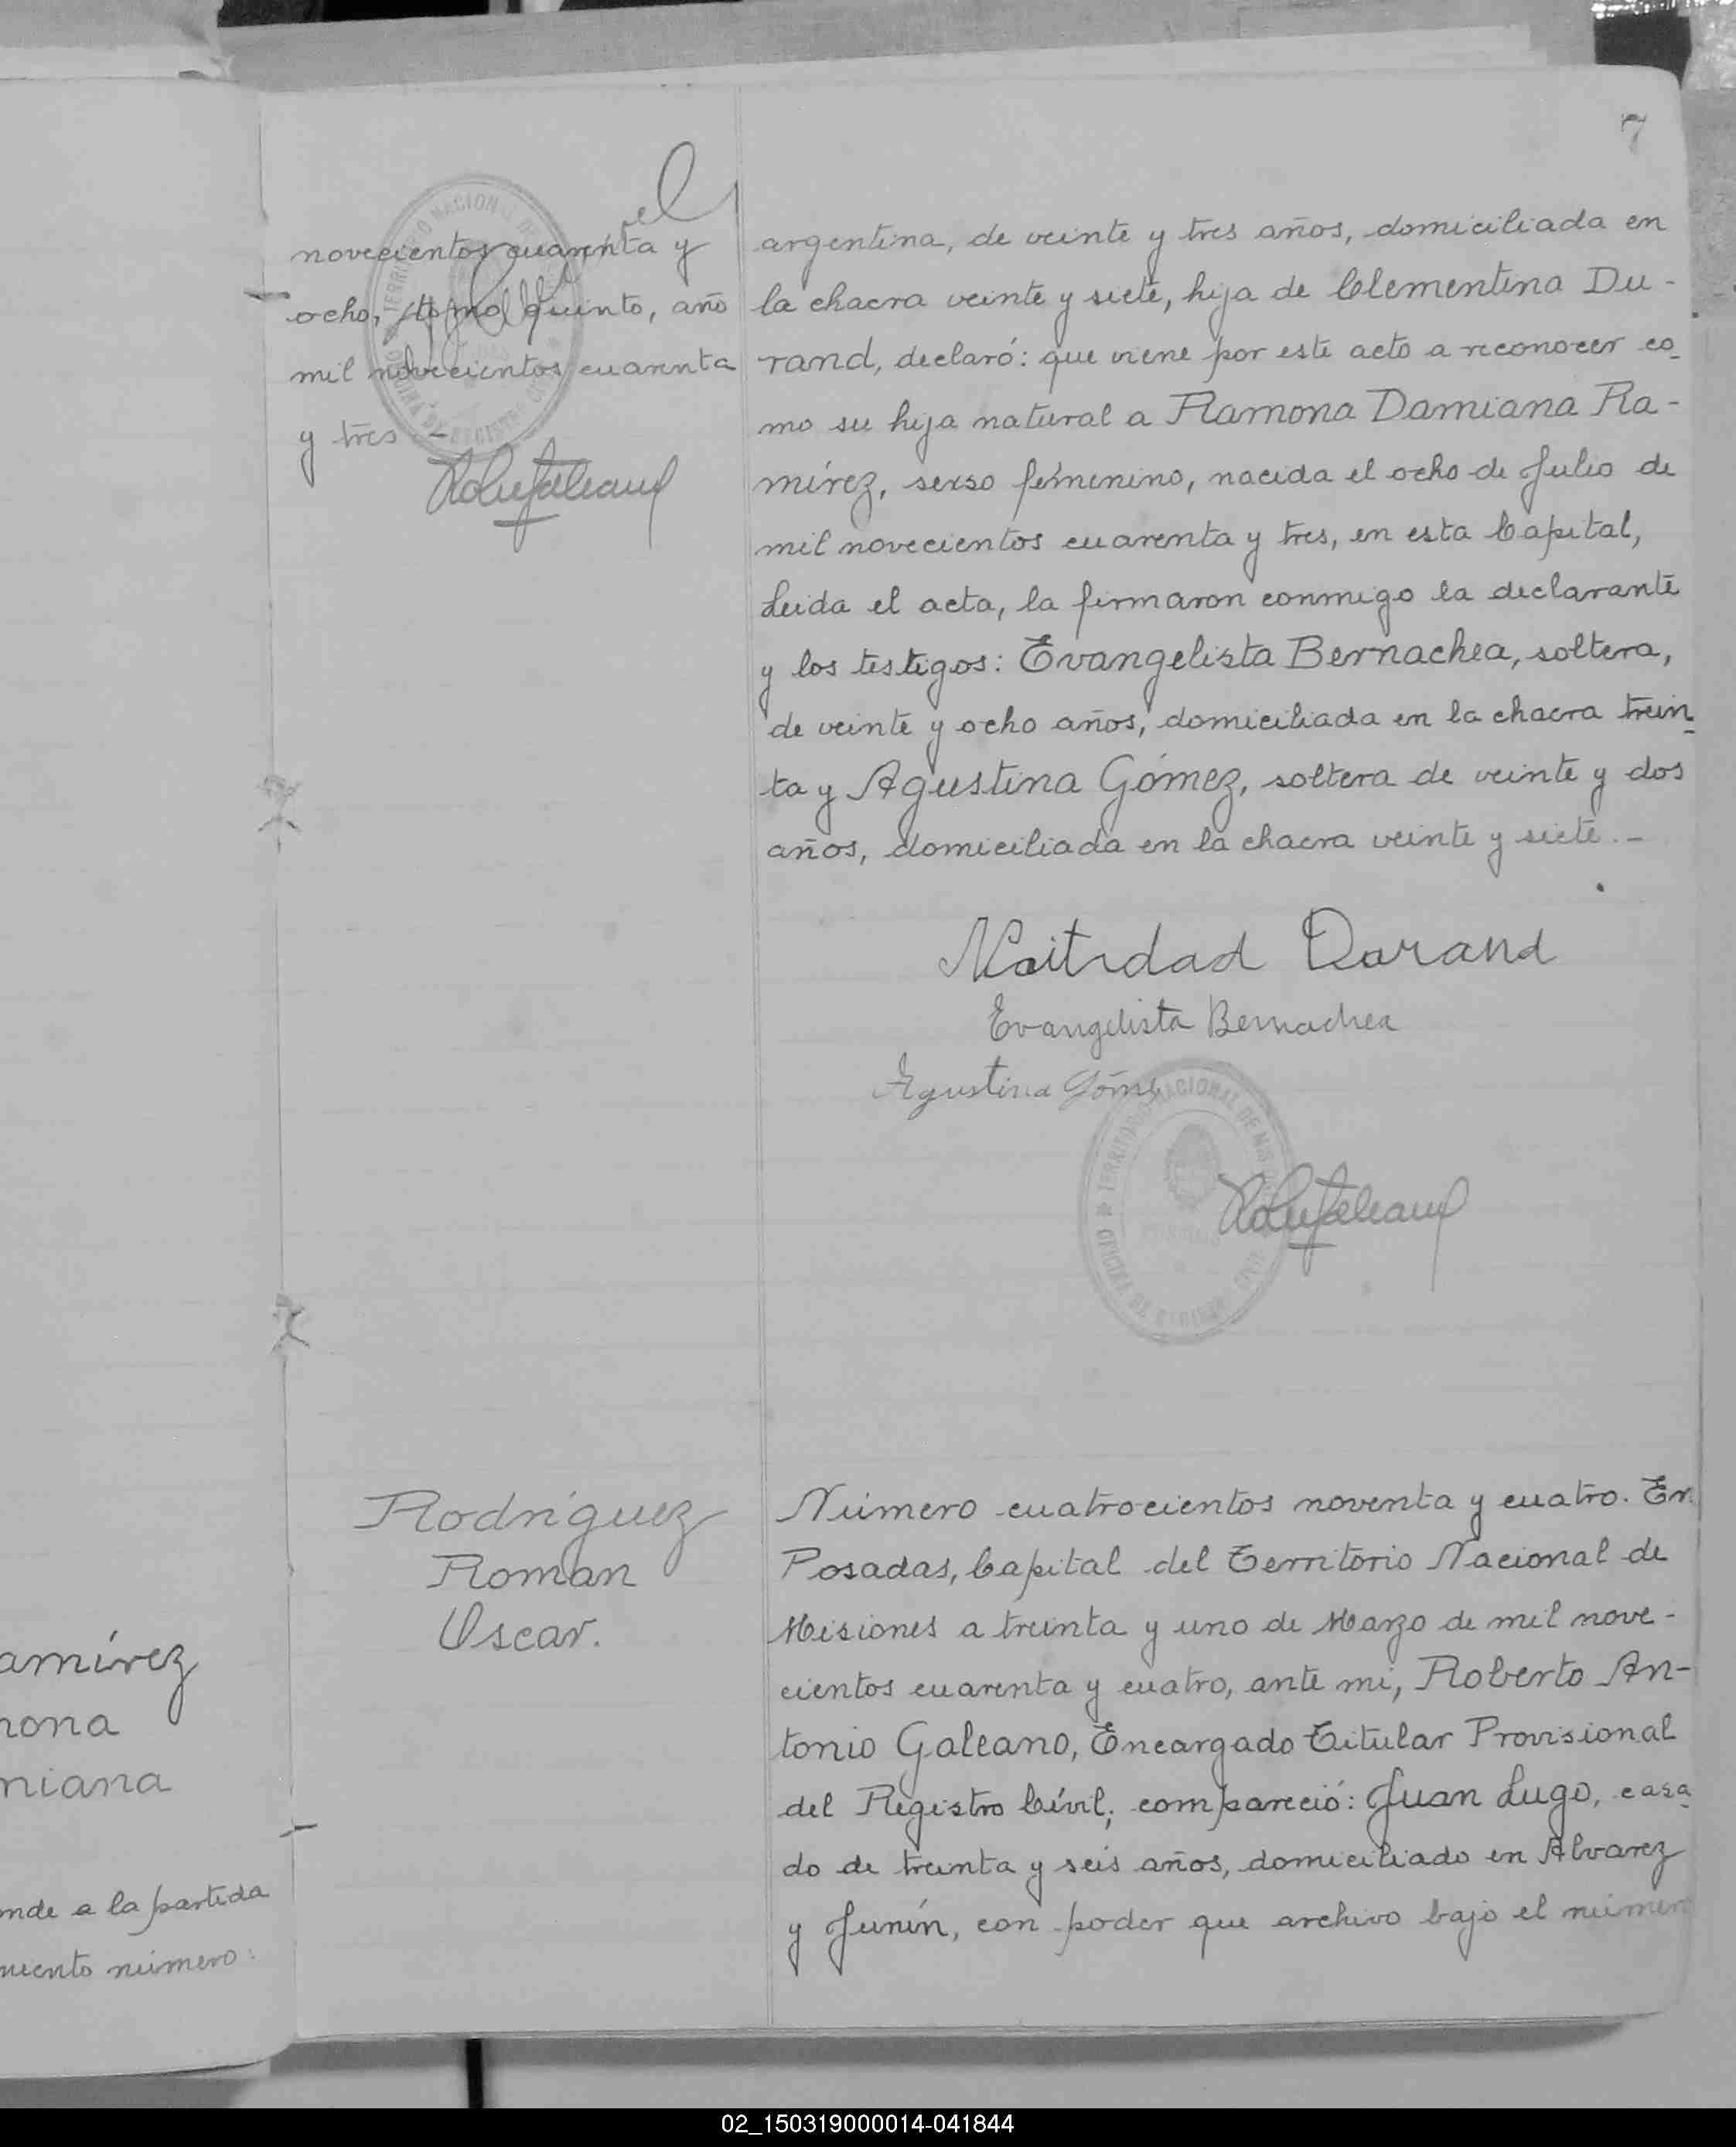 7
novecientos cuarenta y
ocho, tomo quinto, año
mil novecientos cuarenta
y tres -
argentina, de veinte y tres años, domiciliada en
la chacra veinte y siete, hija de Clementina Du-
rand, declaró: que viene por este acto a reconocer co-
mo su hija natural a Ramona Damiana Ra-
mírez, sexso femenino, nacida el ocho de Julio de
mil novecientos cuarenta y tres, en esta Capital,
Leida el acta, la firmaron conmigo la declarante
y los testigos: Evangelista Bernachea, soltera,
de veinte y ocho años, domiciliada en la chacra trein-
ta y Agustina Gómez, soltera de veinte y dos
años, domiciliada en la chacra veinte y siete.-
Durand
Evangelista Bernachea
Agustina Góme
TERRITORIO NACIONAL DE MIS
OFICINA DE REGISTRO CIVIL
Rodríguez
Roman
Oscar.
Número cuatrocientos noventa y cuatro. En
Posadas, Capital del Territorio Nacional de
Misiones a treinta y uno de Marzo de mil nove-
cientos cuarenta y cuatro, ante mi, Roberto An-
tonio Galeano, Encargado Titular Provisional
del Registro Civil; compareció: Juan Lugo, casa-
do de treinta y seis años, domiciliado en Alvarez
y Junín, con poder que archivo bajo el número
amírez
mona
miana
nde a la partida
miento número:
02_150319000014-041844